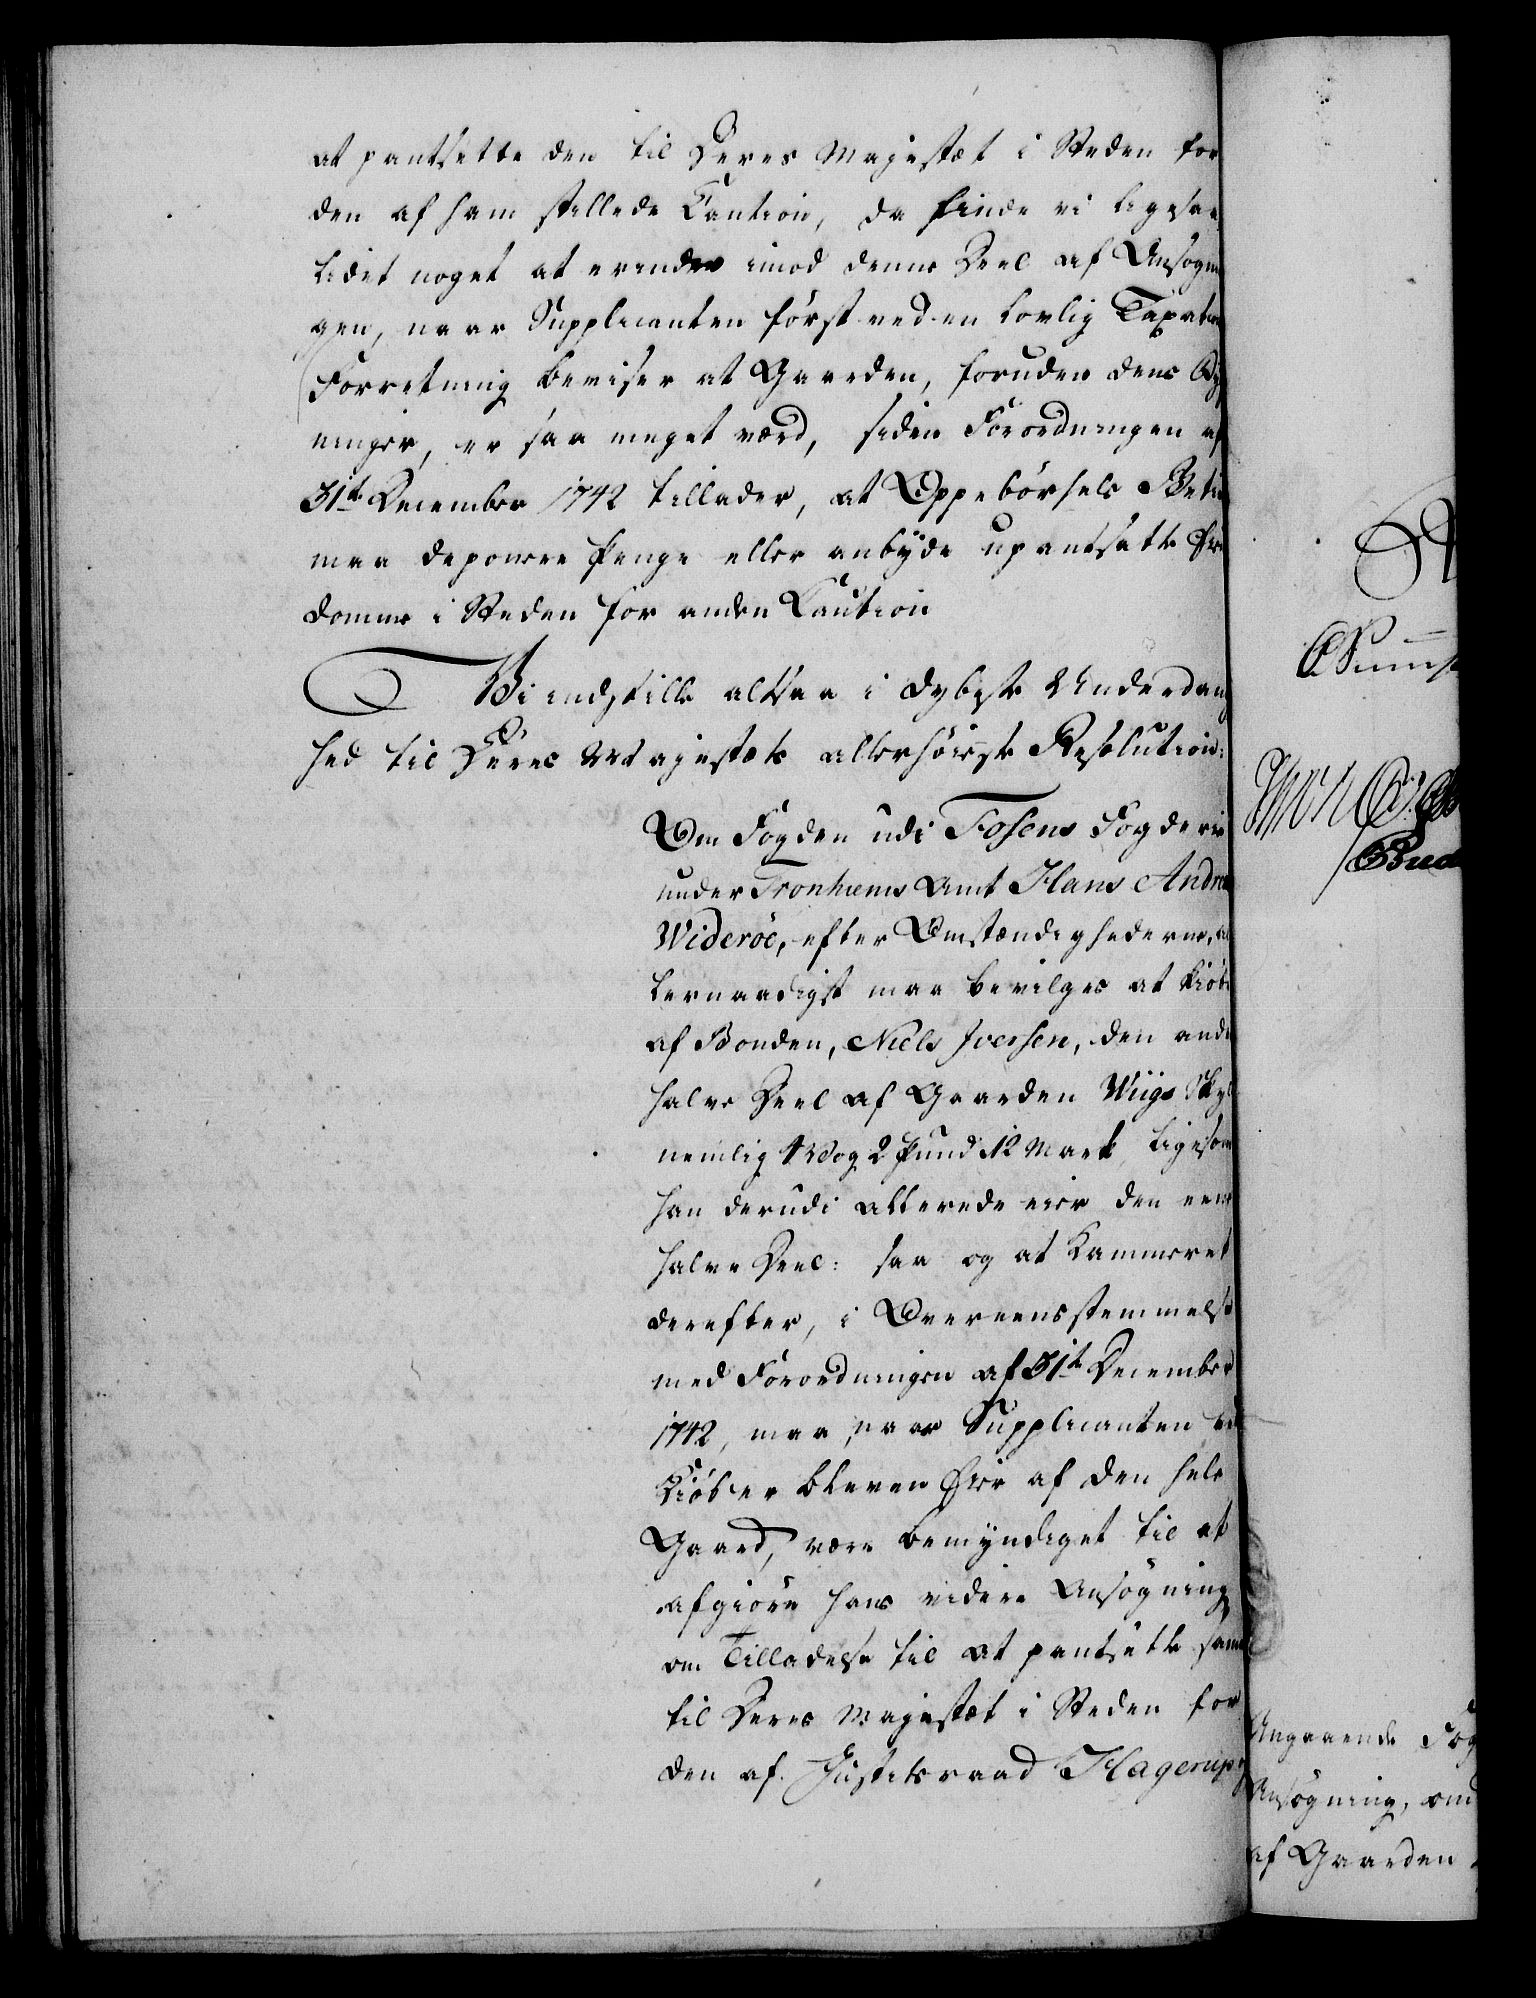 at pantsette den til Deres Majestæt i Steden for
den af ham stillede Caution, da finde vi ligesaa
lidet noget at erindre imod denne Deel af Ansøgnin
gen, naar Supplicanten først ved en lovlig Taxations
Forretning beviser at Gaarden, foruden dens Byg
ninger, er saa meget værd, siden Forordningen af
31te December 1742 tillader, at Oppebørsels Betien
maa deponere Penge eller anbyde upantsatte Eien
domme i Steden for anden Caution
Vi indstille altsaa i dybeste Underdanig
hed til Deres Majestæts allerhøieste Resolution:
Om Fogden udi Fosens Fogderie
under Tronhiems Amt Hans Andreas
Widerøe, efter Omstændighederne, al
lernaadigst maa bevilges at kiøbe
af Bonden, Niels Iversen, den anden
halve Deel af Gaarden Wiigs Skyld
nemlig 1 Vog 2 Pund 12 Mark, ligesom
han derudi allerede eier den eene
halve Deel: saa og at Kammeret
derefter, i Overeensstemmelse
med Forordningen af 31te December
1742, maa, naar Supplicanten ved
Kiøb er bleven Eier af den hele
Gaard, være bemyndiget til at
afgiøre hans videre Ansøgning
om Tilladelse til at pantsætte samme
til Deres Majestæt i Steden for
den af Justitsraad Hagerup
Angaaende Fog
Ansøgning, om
af Gaarden